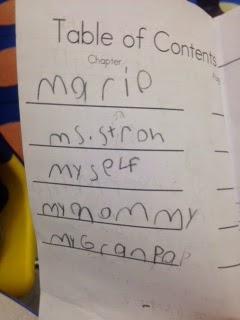 Table of Contents
Chapter
marie
ms.stron
my self
my mommy
my Granpap